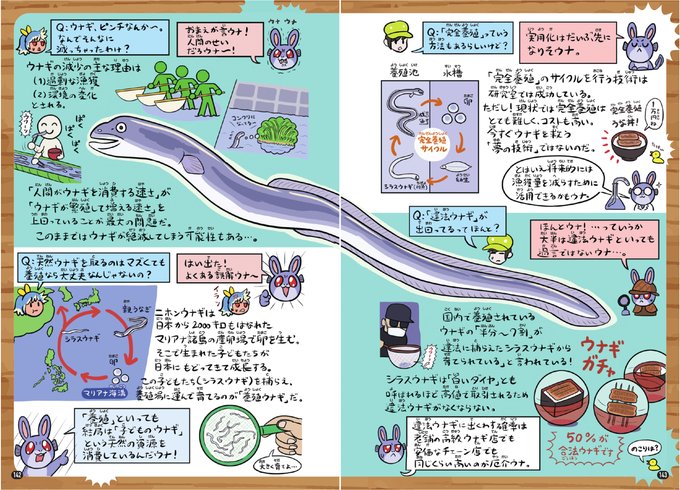 Q:ウナギ、ピンチなんか〜。
なんでそんなに
減っちゃったわけ?
おまえが言うナ!
人間のせい
だろウナ〜!
ウナ ウナ
ウナギの減少の主な理由は
(1)過剰な漁獲
(2)環境の変化
とされる。
ぱく
ぱく
コンクリに
「人間がウナギを消費する速さ」が
「ウナギが繁殖して増える速さ」を
上回っていることが最大の問題だ。
このままではウナギが絶滅してしまう可能性もある…。
Q:天然ウナギを取るのはマズくても
養殖なら大丈夫なんじゃないの?
はい出た!
よくある誤解ウナ〜
イラッ
シラスウナギ
親うなぎ
マリアナ海溝
ニホンウナギは
日本から2000キロもはなれた
マリアナ諸島の産卵場で卵を産む。
そこで生まれた子どもたちが
日本にもどってきて成長する。
この子どもたち(シラスウナギ)を捕らえ、
養殖場に運んで育てるのが「養殖ウナギ」だ。
「養殖」といっても
結局は「子どものウナギ」
という天然の資源を
消費しているんだウナ!
大きく育てよ…
142
Q:「完全養殖」っていう
方法もあるらしいけど?
実用化はだいぶ先に
なりそウナ。
養殖池
水槽
卵
完全養殖
サイクル
シラスウナギ(稚魚)
「完全養殖」のサイクルを行う技術は
研究室では成功している。
ただし!現状では完全養殖は
とても難しく、コストも高い。
今すぐウナギを救う
「夢の技術」ではないのだ。
完全養殖
うな丼!
とはいえ将来的には
漁獲量を減らすために
活用できるかもウナ。
Q:「違法ウナギ」が
出回ってるってほんと?
ほんとウナ!…っていうか
大半は違法ウナギといっても
過言ではないウナ…。
国内で養殖されている
ウナギの「半分〜7割」が
違法に捕らえたシラスウナギから
育てられている」と言われている!
シラスウナギは「白いダイヤ」とも
呼ばれるほど高値で取引されるため
違法ウナギがなくならない。
違法ウナギに出くわす確率は
老舗の高級ウナギ店でも
安価なチェーン店でも
同じくらい高いのが厄介ウナ。
ウナギ
ガチャ
50%が
合法ウナギです
のこりは?
143